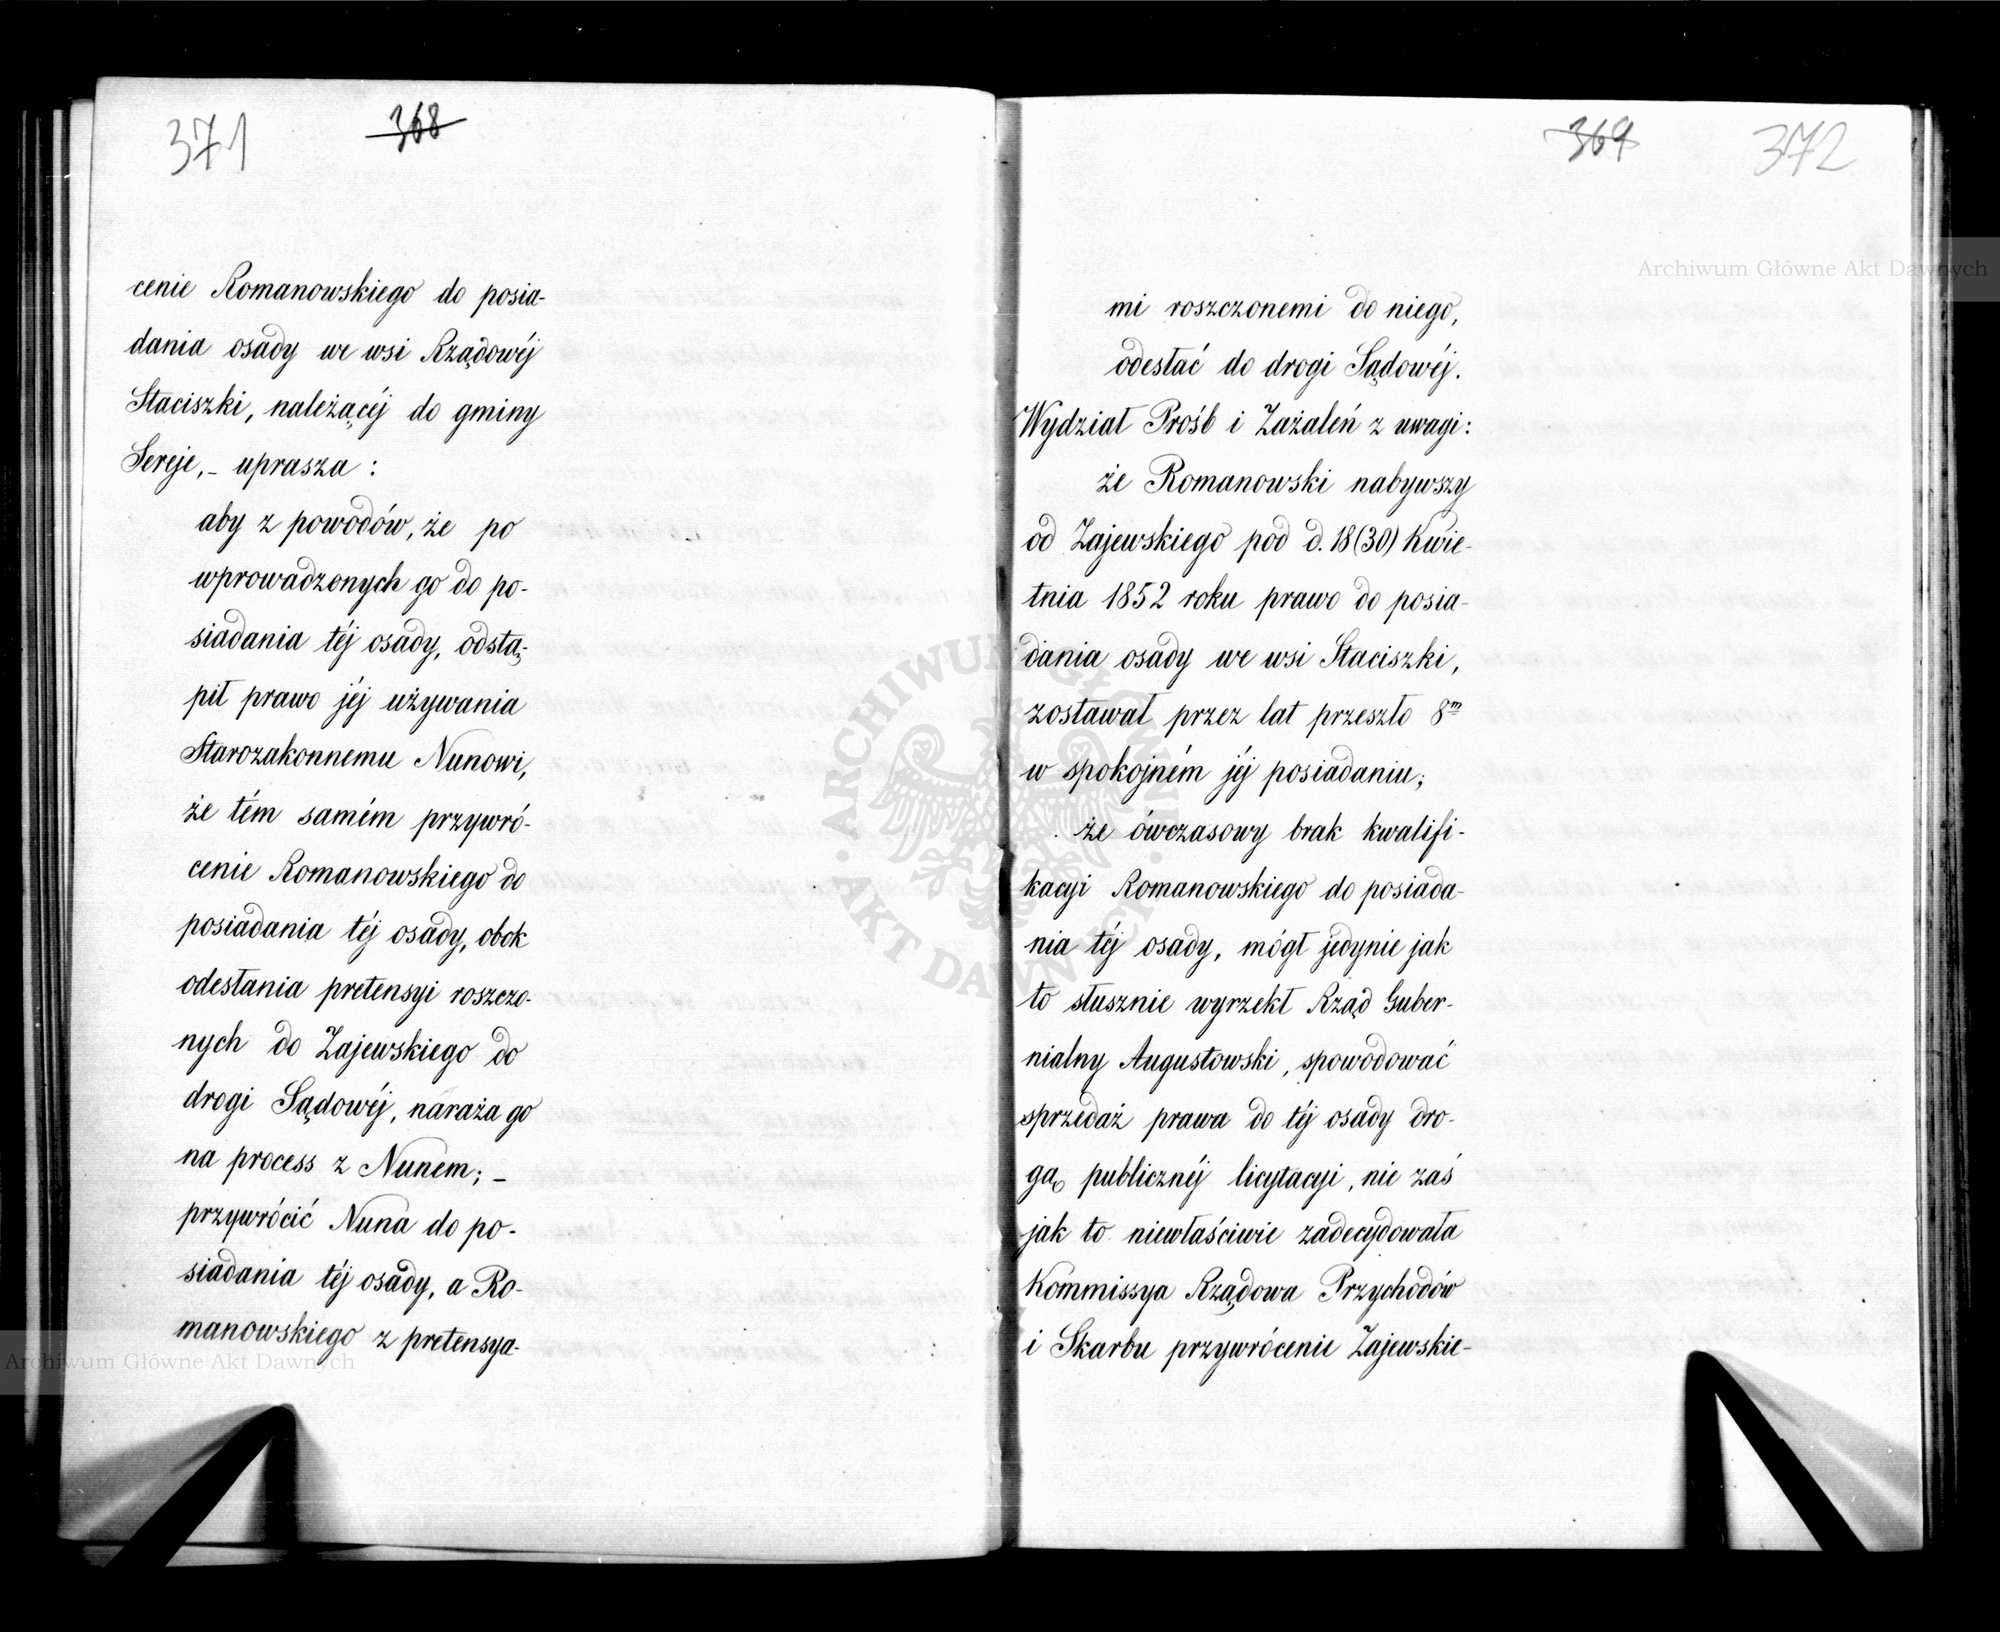 371
368
cenie Romanowskiego do posia-
dania osady we wsi Rządowéj
Staciszki, należącéj do gminy
Sereje, – uprasza :
aby z powodów, że po
wprowadzonych go do po-
siadania téj osady, odstą-
pił prawo jéj używania
Starozakonnemu Nunowi,
że tém samém przywró-
cenie Romanowskiego do
posiadania téj osady, obok
odesłania pretensyi roszczo-
nych do Zajewskiego do
drogi Sądowéj, naraża go
na process z Nunem; –
przywrócić Nuna do po-
siadania téj osady, a Ro-
manowskiego z pretensya-
369
372
mi roszczonemi do niego,
odesłać do drogi Sądowéj.
Wydział Prośb i Zażaleń z uwagi:
że Romanowski nabywszy
od Zajewskiego pod d. 18 (30) Kwie-
tnia 1852 roku prawo do posia-
dania osady we wsi Staciszki,
zostawał przez lat przeszło 8m
w spokojném jéj posiadaniu;
że ówczasowy brak kwalifi-
kacyi Romanowskiego do posiada-
nia téj osady, mógł jedynie jak
to słusznie wyrzekł Rząd Guber-
nialny Augustowski, spowodować
sprzedaż prawa do téj osady dro-
gą publicznéj licytacyi, nie zaś
jak to niewłaściwie zadecydowała
Kommissya Rządowa Przychodów
i Skarbu przywrócenie Zajewskie-
Archiwum Główne Akt Dawnych
Archiwum Główne Akt Dawnych
ARCHIWUM GŁÓWNE AKT DAWNYCH